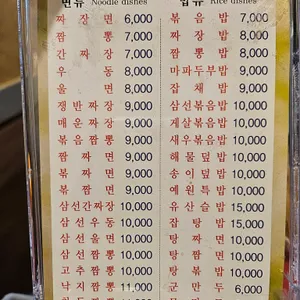 면류 Noodle dishes
짜 장 면 6,000
짬 뽕 7,000
간 짜 장 7,000
우 동 8,000
울 면 8,000
쟁반짜장 9,000
매운짜장 9,000
볶음짬뽕 9,000
짬 짜 면 9,000
볶 짜 면 9,000
볶 짬 면 9,000
삼선간짜장 10,000
삼선우동 10,000
삼선울면 10,000
삼선짬뽕 10,000
고추짬뽕 10,000
낙지짬뽕 11,000
밥류 Rice dishes
볶 음 밥 7,000
짜 장 밥 8,000
짬 뽕 밥 8,000
마파두부밥 9,000
잡 채 밥 9,000
삼선볶음밥 10,000
게살볶음밥 10,000
새우볶음밥 10,000
해물덮밥 10,000
송이덮밥 10,000
예원특밥 10,000
유산슬밥 15,000
잡탕밥 15,000
탕 짜 면 10,000
탕 짬 면 10,000
탕 볶 밥 10,000
군 만 두 6,000